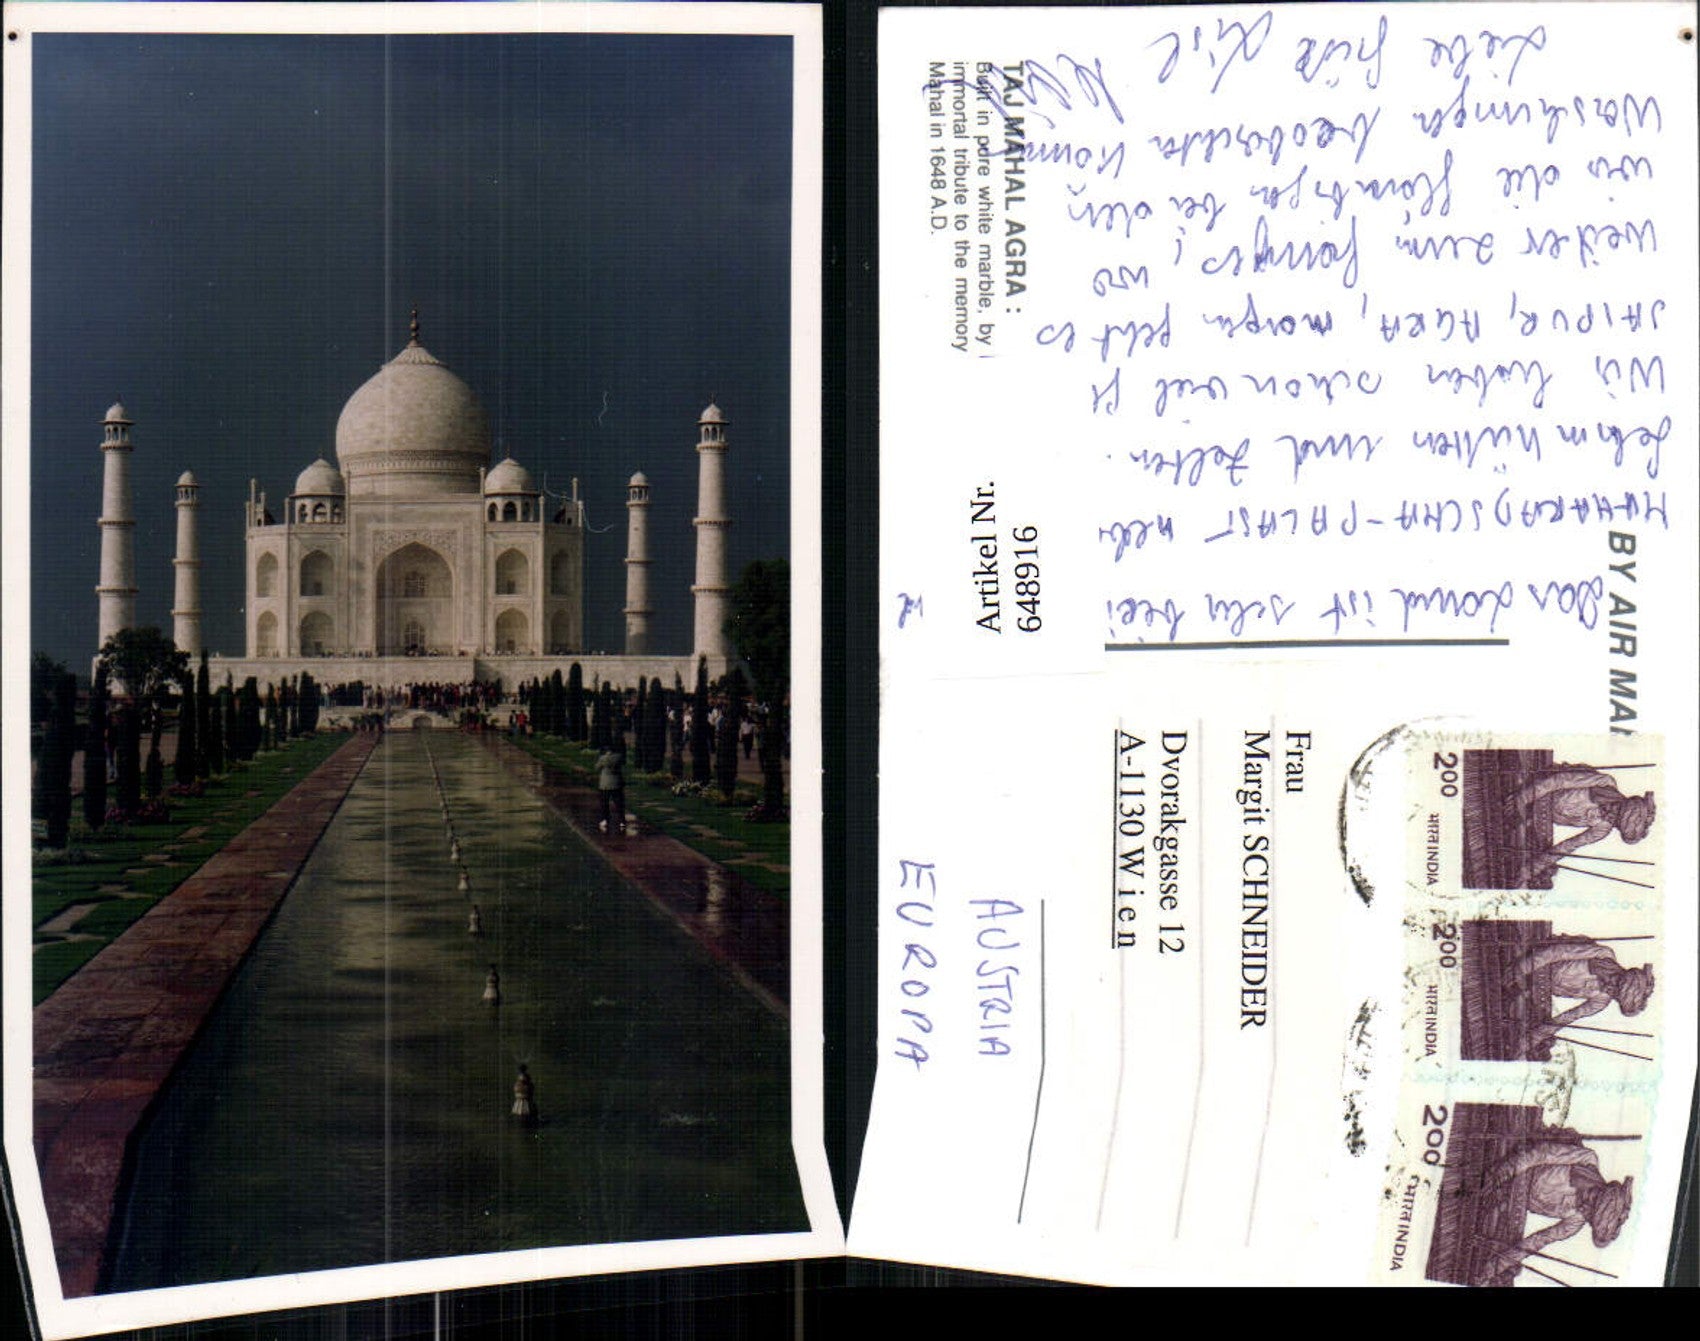 TAJ MAHAL AGRA :
Built in pure white marble, by
immortal tribute to the memory
Mahal in 1648 A.D.
Artikel Nr.
648916
BY AIR MAI
Das Land ist sehr
MAHARADSCHA-PALAST neben
Lehmhütten und Zelten.
Wir haben schon viel
JAIPUR, AGRA, morgen geht es
weiter zum Ganges, wo
wir die gläubigen bei den
Waschungen beobachten
Liebe Grüße
Frau
Margit SCHNEIDER
Dvorakgasse 12
A-1130 W i e n
AUSTRIA
EUROPA
200
भारत INDIA
200
भारत INDIA
200
भारत INDIA